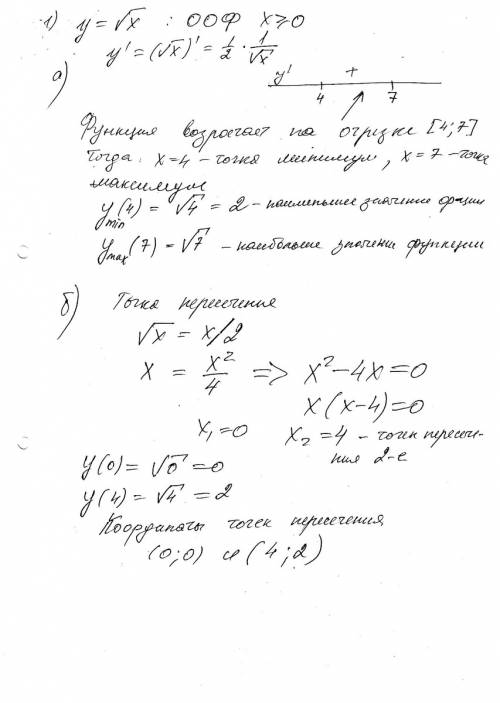 1) y = √x : ООФ x ≥ 0
y' = (√x)' = 1/2 · 1/√x
а) y' + 4 7
Функция возрастает на отрезке [4;7]
Тогда: x=4 – точка минимум, x=7 – точка
максимум
y min (4) = √4 = 2 – наименьшее значение функции
y max (7) = √7 – наибольше значение функции
б) Точка пересечения
√x = x/2
x = x²/4 => x² – 4x = 0
x(x–4) = 0
x₁=0 x₂=4 – точек пересече-
ния 2-е
y(0) = √0 = 0
y(4) = √4 = 2
Координаты точек пересечения
(0;0) и (4;2)